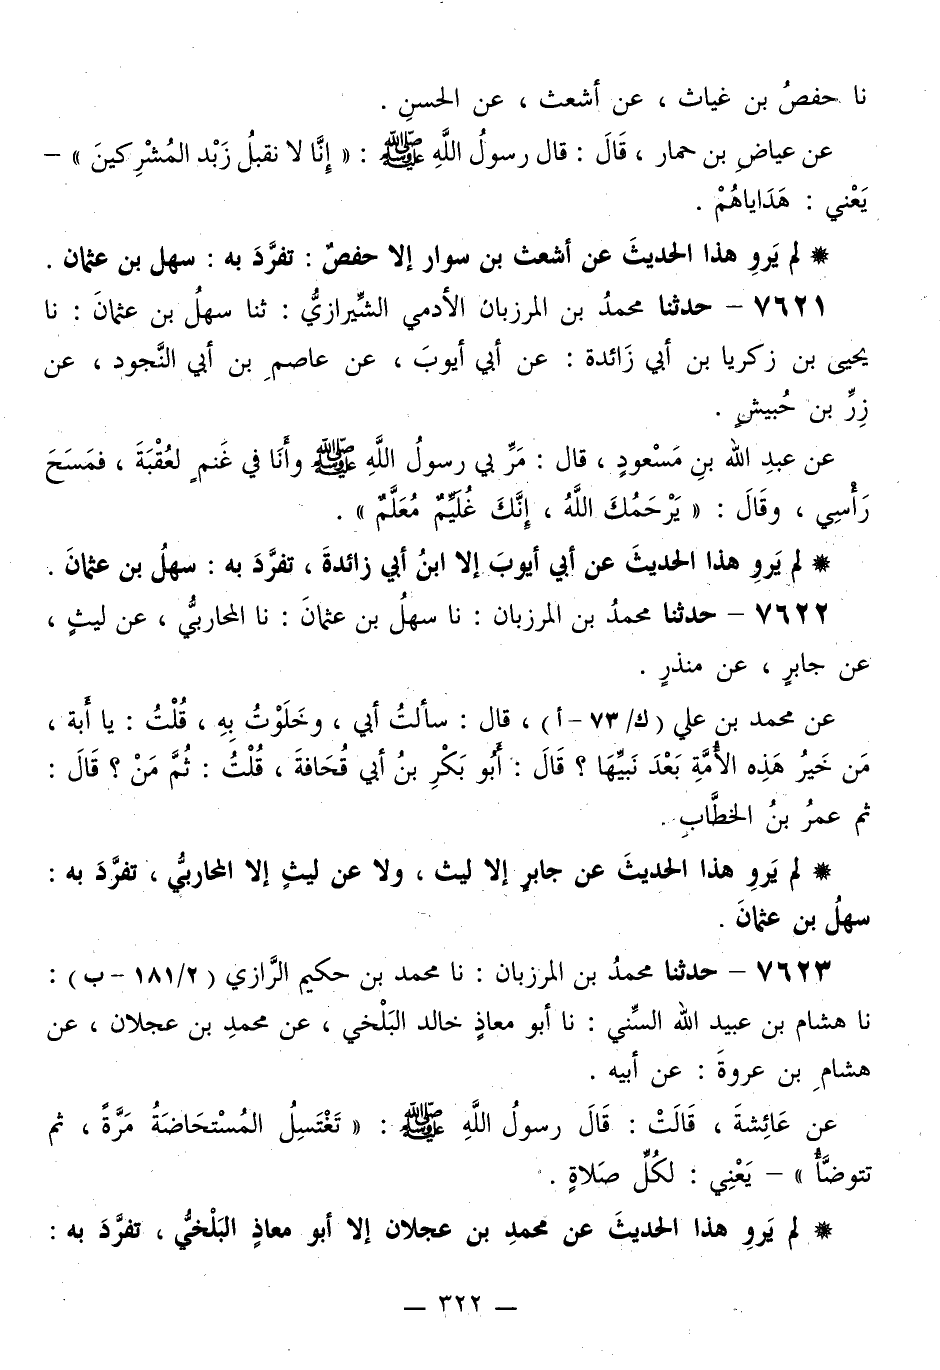 نا حفصُ بن غياث ، عن أشعث ، عن الحسنِ .
عن عياضِ بن حمار ، قَالَ : قال رسولُ اللَّهِ ﷺ : « إِنَّا لا نقبلُ زَبْد المُشْرِكينَ » –
يَعْني : هَدَاياهُمْ .
* لم يَروِ هذا الحديثَ عن أشعث بن سوار إلا حفصٌ : تفرَّدَ به : سهل بن عثمان .
٧٦٢١ – حدثنا محمدُ بن المرزبان الأدمي الشِّيرازيُّ : ثنا سهلُ بن عثمانَ : نا
يحيى بن زكريا بن أبي زَائدة : عن أبي أيوبَ ، عن عاصمِ بن أبي النَّجود ، عن
زِرِّ بن حُبيشٍ .
عن عبدِ الله بنِ مَسْعودٍ ، قال : مَرِّ بي رسولُ اللَّهِ ﷺ وأَنَا في غَنمٍ لعُقْبَةَ ، فمَسَحَ
رَأْسِي ، وقَالَ : « يَرْحَمُكَ اللَّهُ ، إِنَّكَ غُلَيِّمٌ مُعَلَّمٌ » .
* لم يَروِ هذا الحديثَ عن أبي أيوبَ إلا ابنُ أبي زائدةَ ، تفرَّدَ به : سهلُ بن عثمانَ .
٧٦٢٢ – حدثنا محمدُ بن المرزبان : نا سهلُ بن عثمانَ : نا المحاربيُّ ، عن ليثٍ ،
عن جابرٍ ، عن منذرٍ .
عن محمد بن علي (ك/ ٧٣ – أ) ، قال : سألتُ أبي ، وخَلَوْتُ بِهِ ، قُلْتُ : يا أَبة ،
مَن خَيرُ هَذِه الأُمَّةِ بَعْدَ نَبيِّهَا ؟ قَالَ : أَبُو بَكْرِ بنُ أبي قُحَافةَ ، قُلْتُ : ثُمَّ مَنْ ؟ قَالَ :
ثم عمرُ بنُ الخطَّابِ .
* لم يَروِ هذا الحديثَ عن جابرٍ إلا ليث ، ولا عن ليثٍ إلا المحاربيُّ ، تفرَّدَ به :
سهلُ بن عثمانَ .
٧٦٢٣ – حدثنا محمدُ بن المرزبان : نا محمد بن حكيم الرَّازي (١٨١/٢ – ب) :
نا هشام بن عبيد الله السِّني : نا أبو معاذٍ خالد البَلْخي ، عن محمدِ بن عجلان ، عن
هشامِ بن عروةَ : عن أبيه .
عن عَائِشةَ ، قَالَتْ : قَالَ رسولُ اللَّهِ ﷺ : « تَغْتَسِلُ المُسْتحَاضَةُ مَرَّةً ، ثم
تتوضَّأُ » – يَعْنِي : لكُلِّ صَلاةٍ .
* لم يَروِ هذا الحديثَ عن محمدِ بن عجلان إلا أبو معاذٍ البَلْخيُّ ، تفرَّدَ به :
— ٣٢٢ —